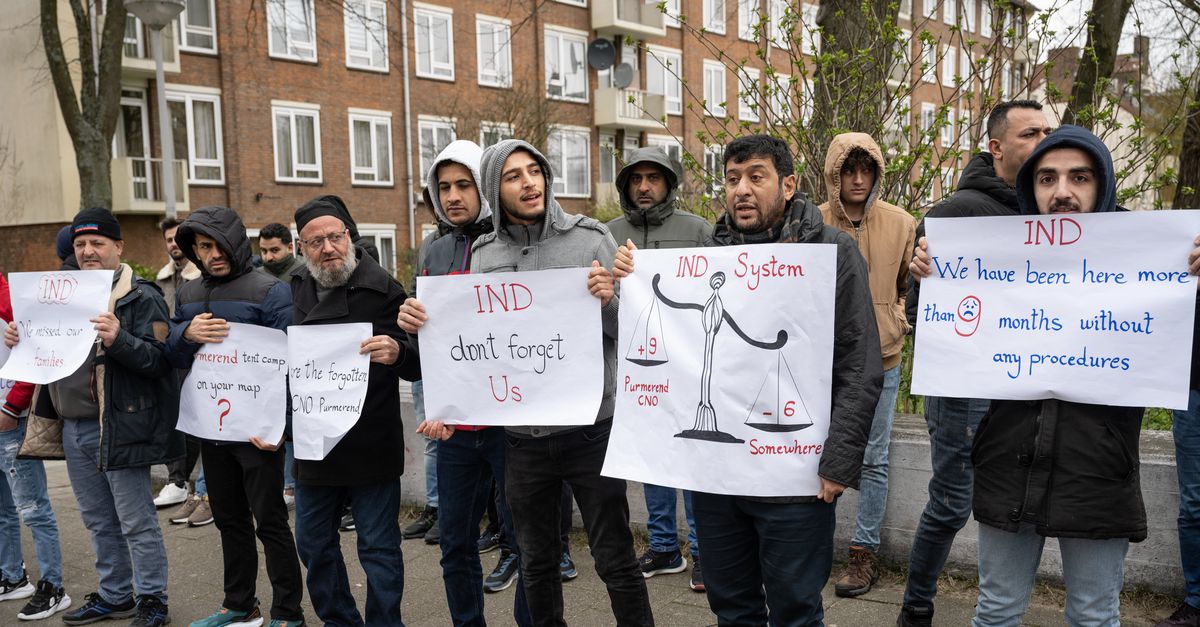 IND
We missed our
families
Purmerend tent camp
on your map
?
are the forgotten
CNO Purmerend
IND
don't forget
Us
IND System
+9
Purmerend
CNO
-6
Somewhere
IND
We have been here more
than 9 months without
any procedures